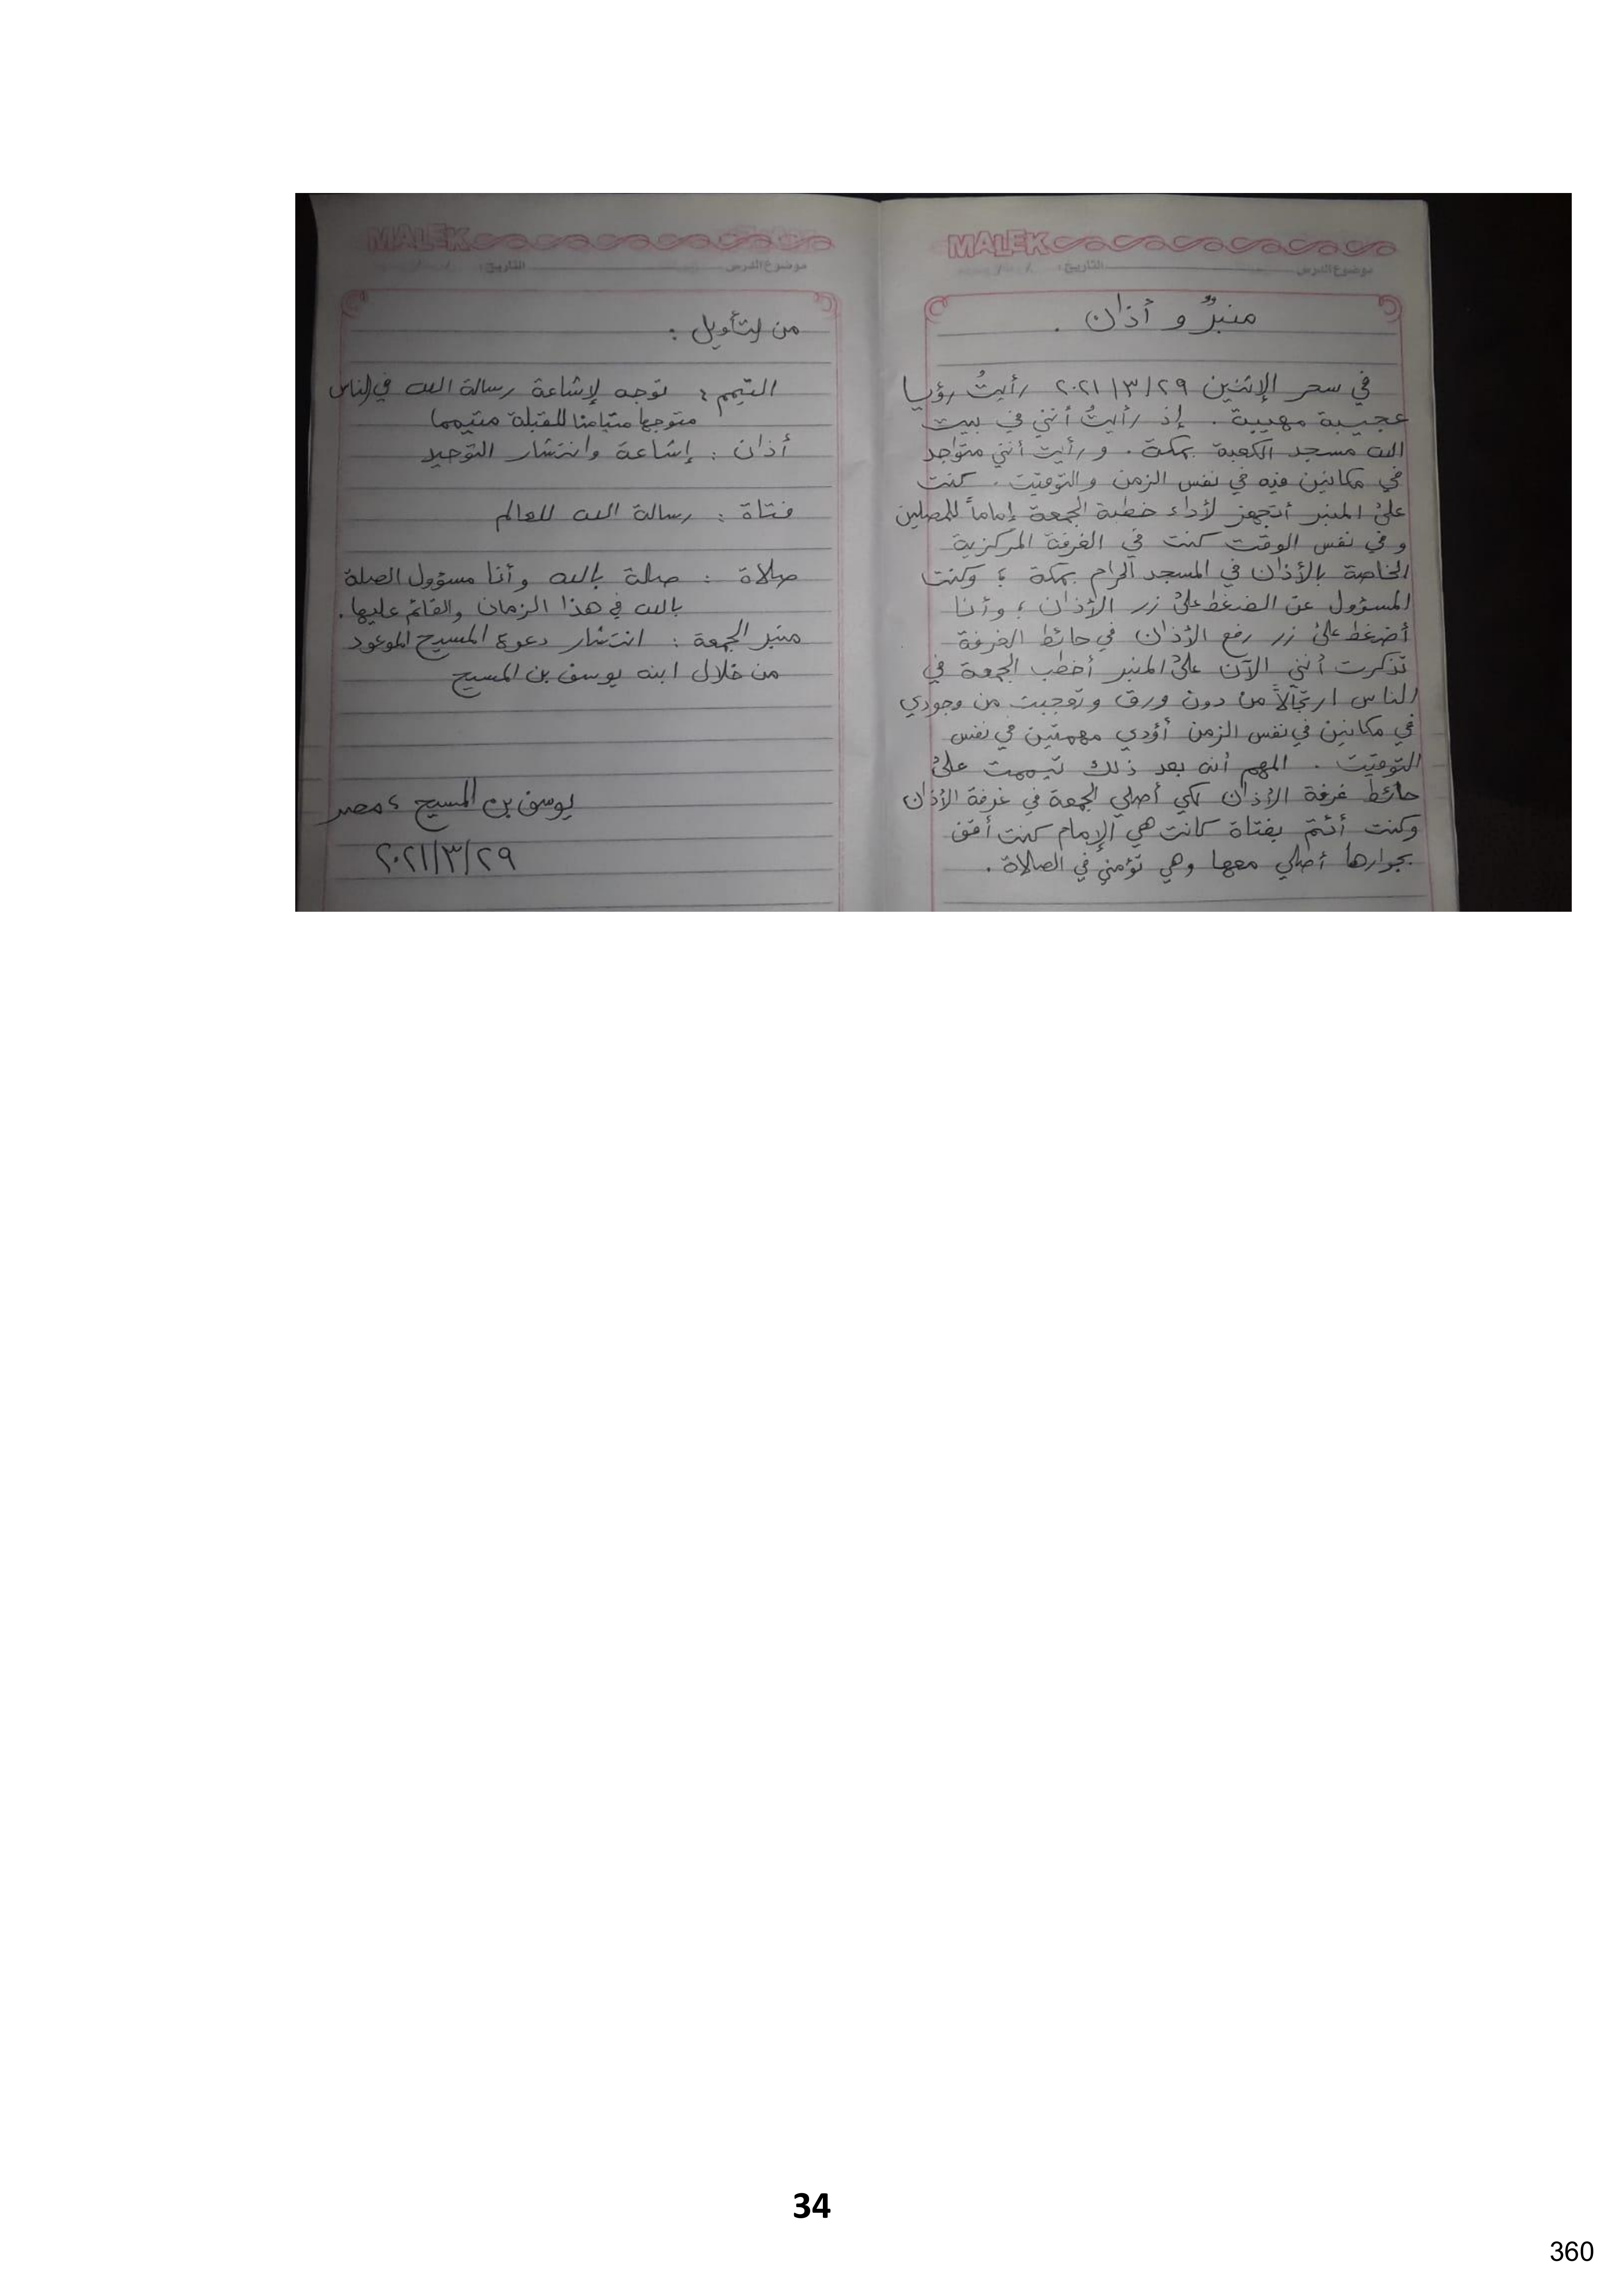 MALEK
موضوع الدرس التاريخ:
منبرٌ و أذان .
في سحر الإثنين ٢٠٢١/٣/٢٩ رأيتُ رؤيا
عجيبة مهيبة . إذ رأيتُ أنني في بيت
الله مسجد الكعبة بمكة . و رأيت أنني متواجد
في مكانين فيه في نفس الزمن والتوقيت . كنت
على المنبر أتجهز لأداء خطبة الجمعة إماماً للمصلين
و في نفس الوقت كنت في الغرفة المركزية
الخاصة بالأذان في المسجد الحرام بمكة ؛ وكنت
المسؤول عن الضغط على زر الأذان ؛ وأنا
أضغط على زر رفع الأذان في حائط الغرفة
تذكرت أنني الآن على المنبر أخطب الجمعة في
الناس ارتجالاً من دون ورق وتعجبت من وجودي
في مكانين في نفس الزمن أؤدي مهمتين في نفس
التوقيت . المهم أنه بعد ذلك تيممت على
حائط غرفة الأذان لكي أصلي الجمعة في غرفة الأذان
وكنت أئتم بفتاة كانت هي الإمام كنت أقف
بجوارها أصلي معها وهي تؤمني في الصلاة .
MALEK
موضوع الدرس التاريخ:
من التأويل :
التيمم : توجه لإشاعة رسالة الله في الناس
متوجها متيامنا للقبلة متيمما
أذان : إشاعة وانتشار التوحيد
فتاة : رسالة الله للعالم
صلاة : صلة بالله وأنا مسؤول الصلة
بالله في هذا الزمان والقائم عليها .
منبر الجمعة : انتشار دعوة المسيح الموعود
من خلال ابنه يوسف بن المسيح
يوسف بن المسيح ، مصر
٢٠٢١/٣/٢٩
34
360